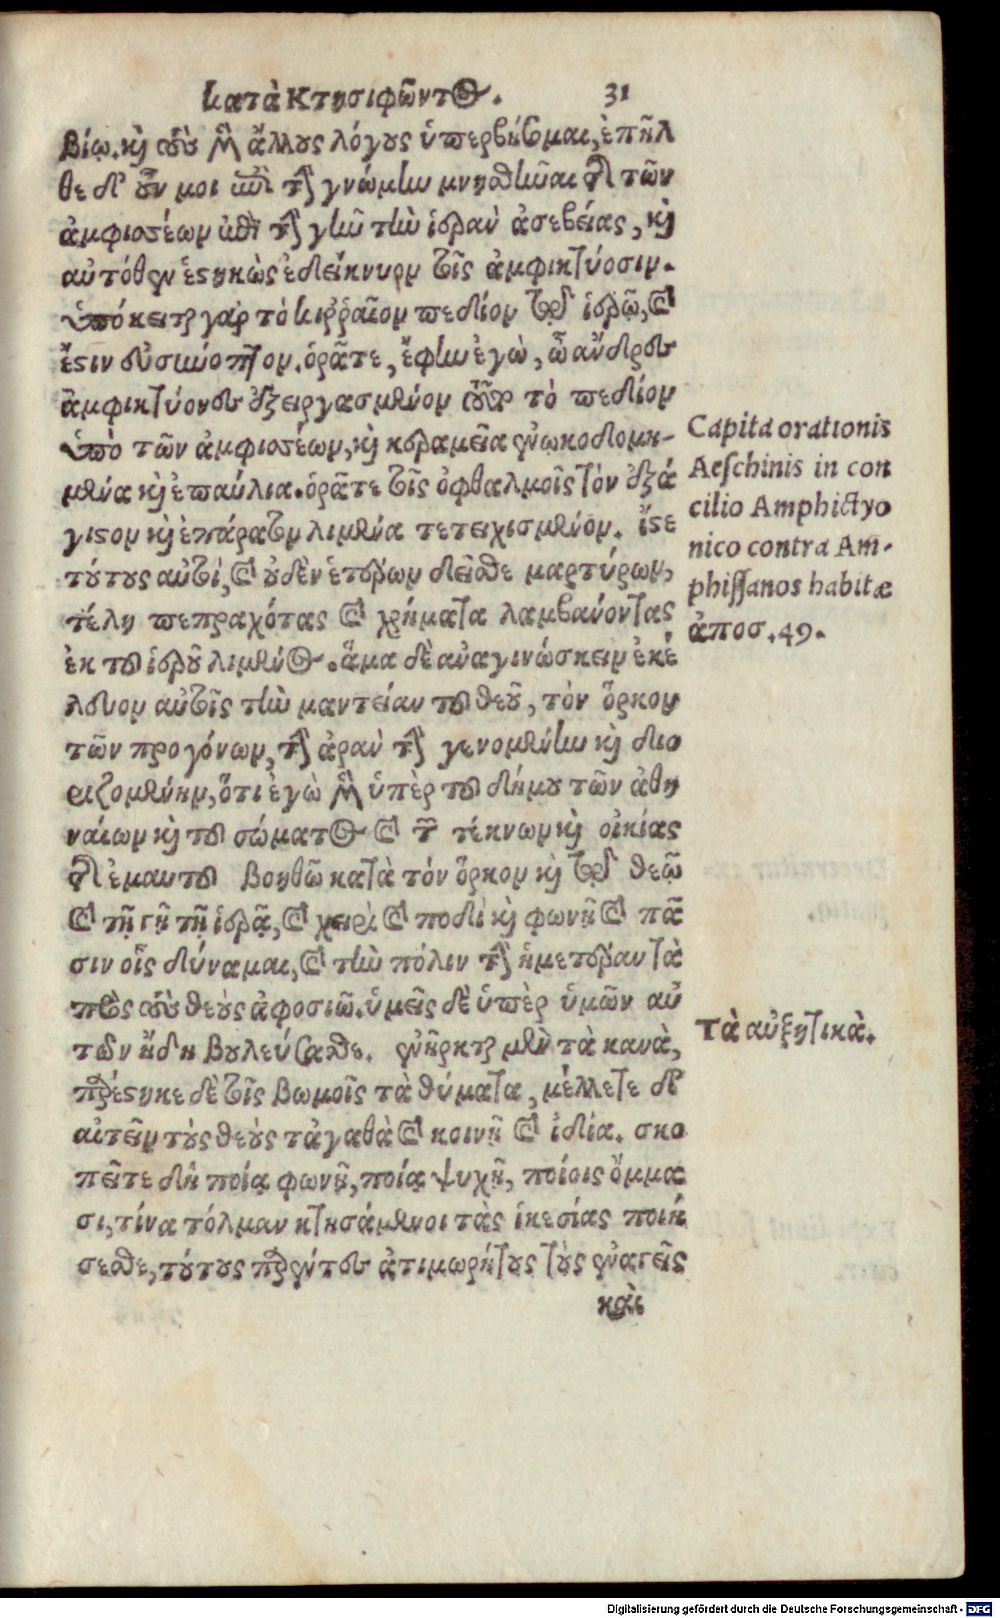 κατὰ Κτησιφῶντος. 31
βίῳ. καὶ τοὺς μὲν ἄλλους λόγους ὑπερβήσομαι, ἐπῆλ
θε δ' οὖν μοι ἐπὶ τὴν γνώμην μνησθῆναι περὶ τῶν
ἀμφισσέων περὶ τὴν γῆν τὴν ἱερὰν ἀσεβείας, καὶ
αὐτόθεν ἑστηκὼς ἐδείκνυον τοῖς ἀμφικτύοσιν.
ὑπόκειται γὰρ τὸ κιρραῖον πεδίον τῷ ἱερῷ, καὶ
ἔστιν εὐσύνοπτον. ὁρᾶτε, ἔφην ἐγὼ, ὦ ἄνδρες
ἀμφικτύονες ἐξειργασμένον τουτὶ τὸ πεδίον
ὑπὸ τῶν ἀμφισσέων, καὶ κεραμεῖα ἐνῳκοδομη-
μένα καὶ ἐπαύλια. ὁρᾶτε τοῖς ὀφθαλμοῖς τὸν ἐξά
γιστον καὶ ἐπάρατον λιμένα τετειχισμένον. ἴστε
τούτους αὐτοί, καὶ οὐδὲν ἑτέρων δεῖσθε μαρτύρων,
τέλη πεπραχότας καὶ χρήματα λαμβάνοντας
ἐκ τοῦ ἱεροῦ λιμένος. ἅμα δὲ ἀναγινώσκειν ἐκέ
λευον αὐτοῖς τὴν μαντείαν τοῦ θεοῦ, τὸν ὅρκον
τῶν προγόνων, τὴν ἀρὰν τὴν γενομένην καὶ διο
ριζομένην, ὅτι ἐγὼ μὲν ὑπὲρ τοῦ δήμου τῶν ἀθη
ναίων καὶ τοῦ σώματος καὶ τῶν τέκνων καὶ οἰκίας
τῆς ἐμαυτοῦ βοηθῶ κατὰ τὸν ὅρκον καὶ τῷ θεῷ
καὶ τῇ γῇ τῇ ἱερᾷ, καὶ χειρὶ καὶ ποδὶ καὶ φωνῇ καὶ πᾶ
σιν οἷς δύναμαι, καὶ τὴν πόλιν τὴν ἡμετέραν τὰ
πρὸς τοὺς θεοὺς ἀφοσιῶ. ὑμεῖς δὲ ὑπὲρ ὑμῶν αὐ
τῶν ἤδη βουλεύσασθε. ἐνῆρκται μὲν τὰ κανὰ,
παρέστηκε δὲ τοῖς βωμοῖς τὰ θύματα, μέλλετε δ'
αἰτεῖν τοὺς θεοὺς τἀγαθὰ καὶ κοινῇ καὶ ἰδίᾳ. σκο
πεῖτε δὴ ποίᾳ φωνῇ, ποίᾳ ψυχῇ, ποίοις ὄμμα
σι, τίνα τόλμαν κτησάμενοι τὰς ἱκεσίας ποιή
σεσθε, τούτους παρέντες ἀτιμωρήτους τοὺς ἐναγεῖς
καὶ
Capita orationis
Aeschinis in con
cilio Amphictyo
nico contra Am-
phissanos habitæ
ἀποσ. 49.
Τὰ αὐξητικὰ.
Digitalisierung gefördert durch die Deutsche Forschungsgemeinschaft - DFG